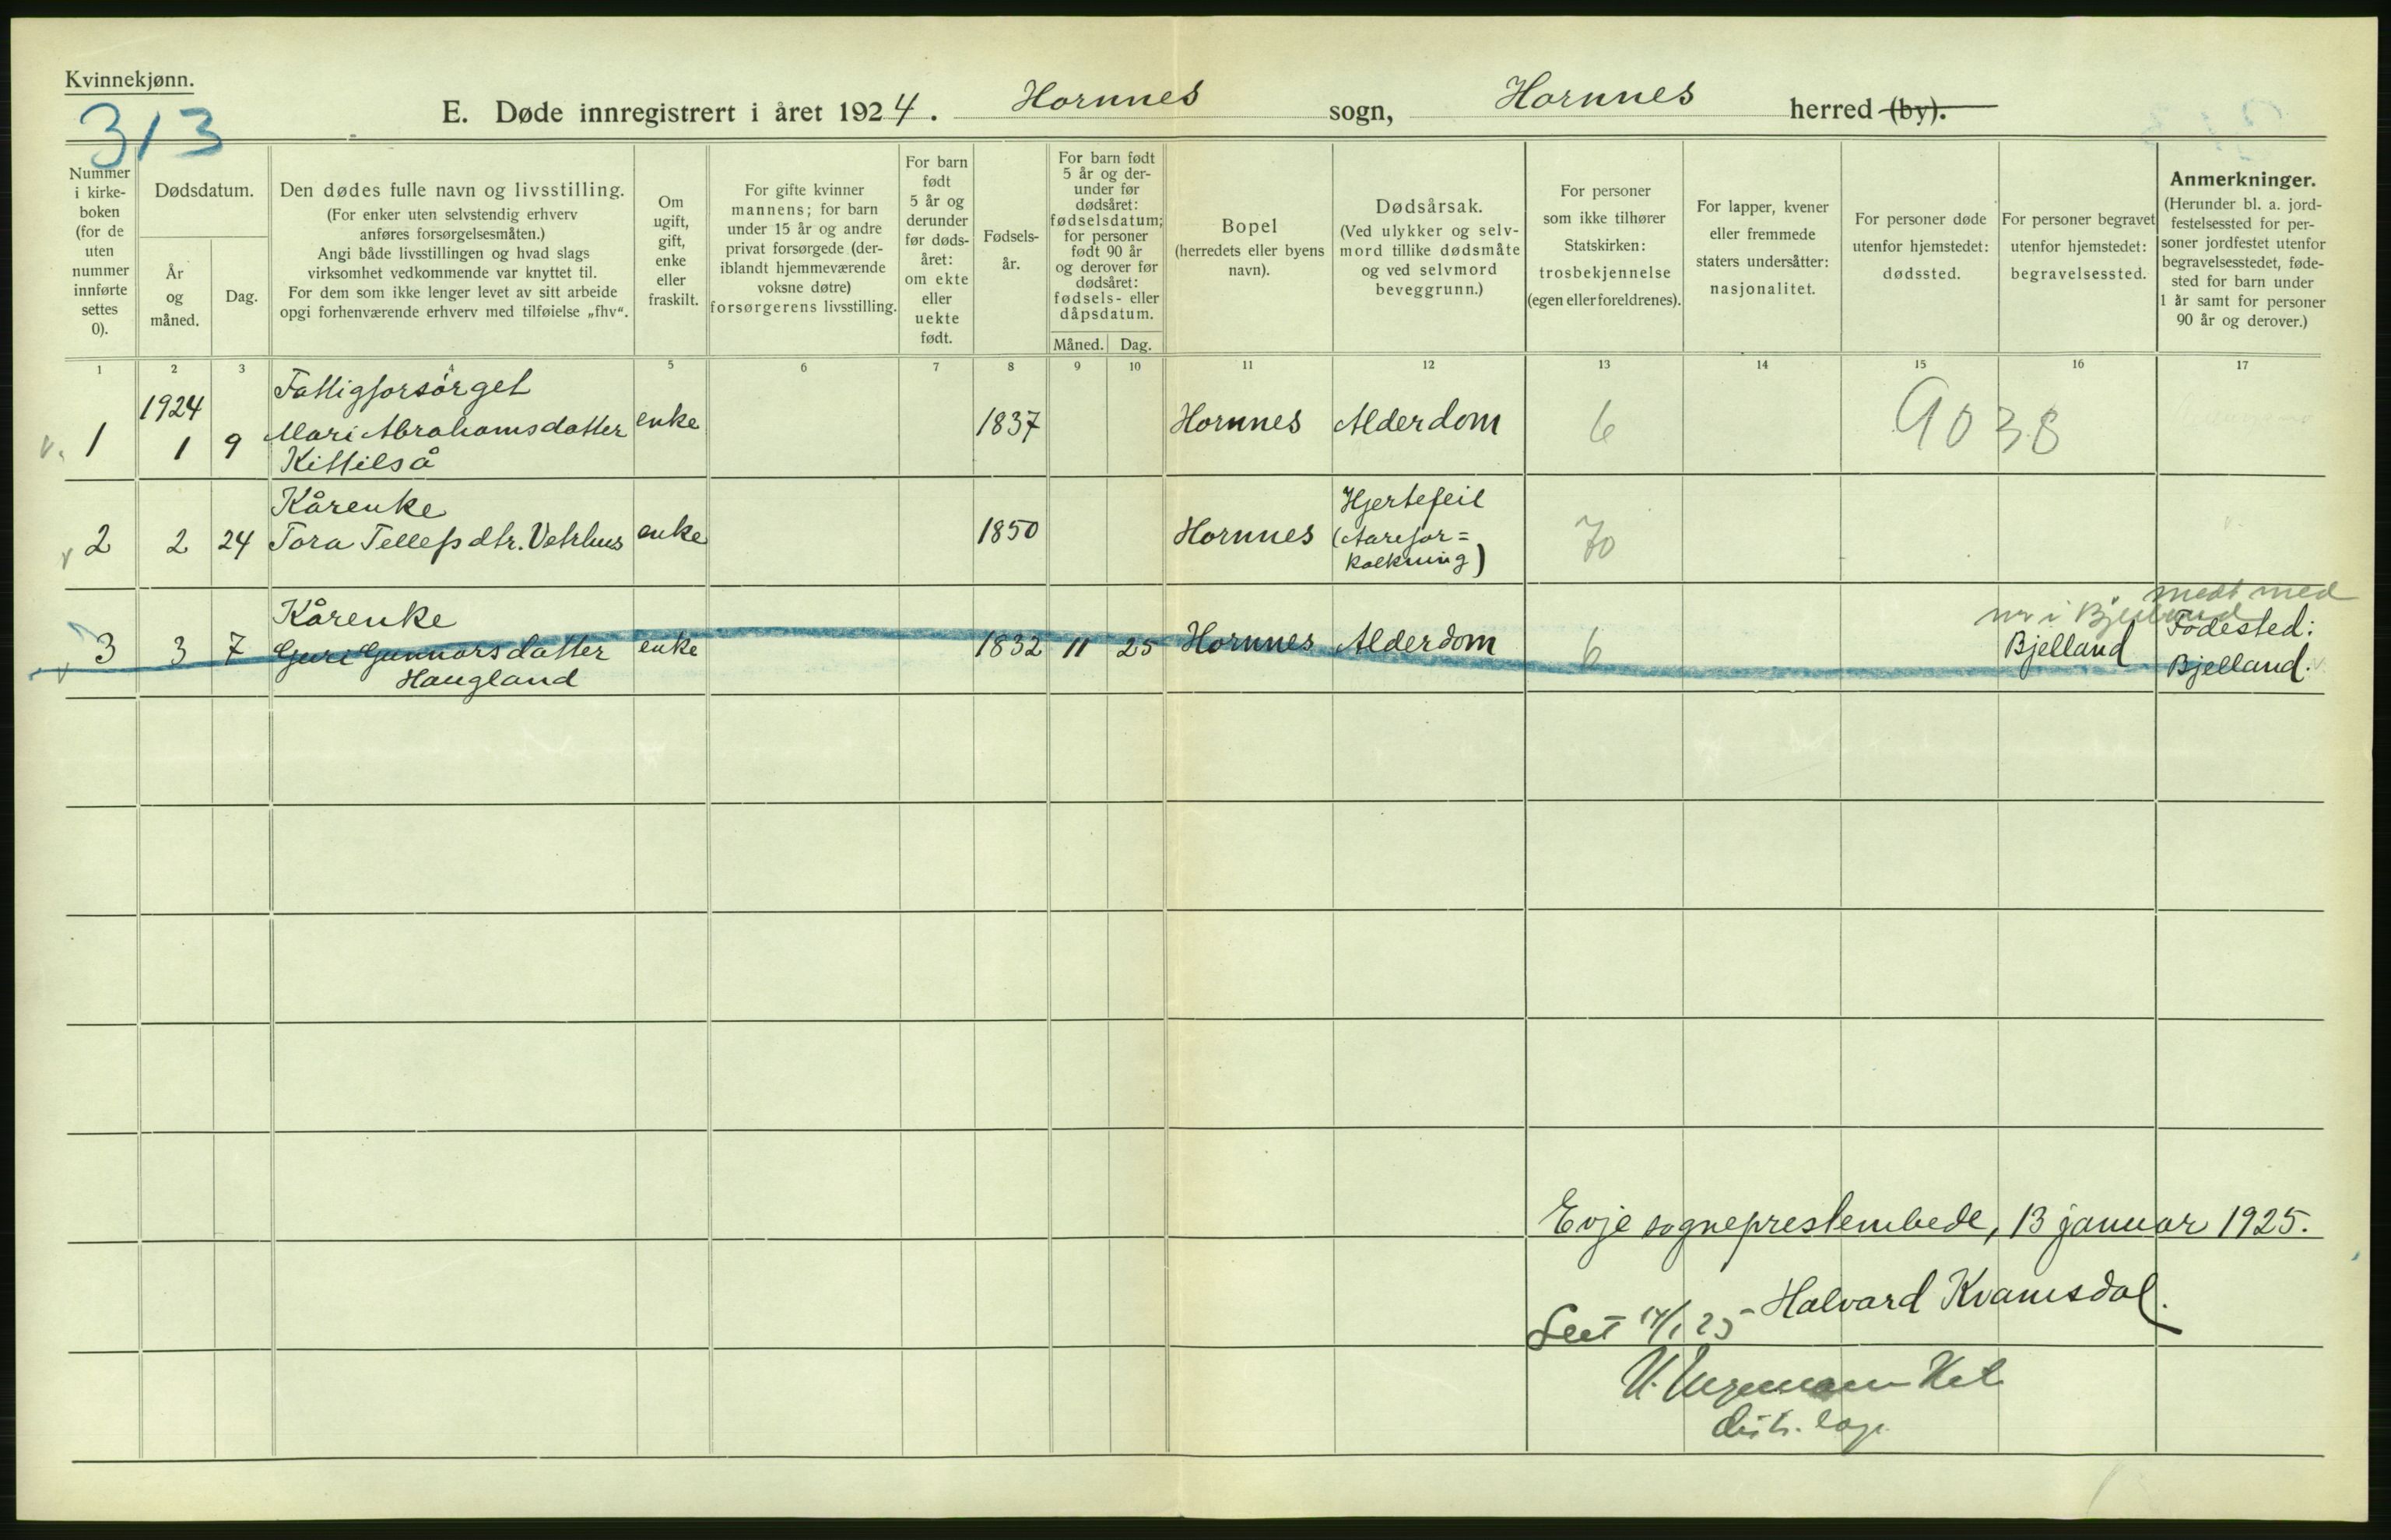 Kvinnekjønn.
313
E. Døde innregistrert i året 1924. Hornnes sogn, Hornnes herred (by).
Nummer i kirke-boken (for de uten nummer innførte settes 0).
Dødsdatum.
År og måned.
Dag.
Den dødes fulle navn og livsstilling.
(For enker uten selvstendig erhverv
anføres forsørgelsesmåten.)
Angi både livsstillingen og hvad slags
virksomhet vedkommende var knyttet til.
For dem som ikke lenger levet av sitt arbeide
opgi forhenværende erhverv med tilføielse „fhv“.
Om ugift, gift, enke eller fraskilt.
For gifte kvinner
mannens; for barn
under 15 år og andre
privat forsørgede (der-
iblandt hjemmeværende
voksne døtre)
forsørgerens livsstilling.
For barn
født
5 år og
derunder
før døds-
året:
om ekte
eller
uekte
født.
Fødsels-
år.
For barn født
5 år og der-
under før
dødsåret:
fødselsdatum;
for personer
født 90 år
og derover før
dødsåret:
fødsels- eller
dåpsdatum.
Måned. Dag.
Bopel
(herredets eller byens
navn).
Dødsårsak.
(Ved ulykker og selv-
mord tillike dødsmåte
og ved selvmord
beveggrunn.)
For personer
som ikke tilhører
Statskirken:
trosbekjennelse
(egen eller foreldrenes).
For lapper, kvener
eller fremmede
staters undersåtter:
nasjonalitet.
For personer døde
utenfor hjemstedet:
dødssted.
For personer begravet
utenfor hjemstedet:
begravelsessted.
Anmerkninger.
(Herunder bl. a. jord-
festelsessted for per-
soner jordfestet utenfor
begravelsesstedet, føde-
sted for barn under
1 år samt for personer
90 år og derover.)
1 2 3 4 5 6 7 8 9 10 11 12 13 14 15 16 17
1924 Fattigforsørget
v. 1 1 9 Mari Abrahamsdatter enke 1837 Hornnes Alderdom 6 9038
Kittilså
Kårenke Hjertefeil
v 2 2 24 Tora Tellefsdtr. Vetrhus enke 1850 Hornnes (Aarefor= 70
kalkning)
medt med
nr i Bjelland
Kårenke Fødested:
v 3 3 7 Guri Gunnarsdatter enke 1832 11 25 Hornnes Alderdom 6 Bjelland Bjelland.
Haugland
Evje sogneprestembede, 13 januar 1925.
Halvard Kvamsdal.
Sett 14/1 25
distr. læge